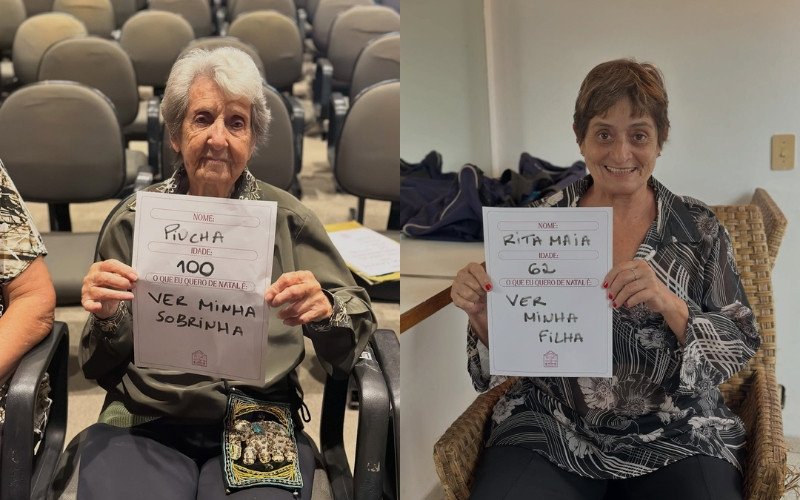 NOME:
PIUCHA
IDADE:
100
O QUE EU QUERO DE NATAL É:
VER MINHA
SOBRINHA
NOME:
RITA MAIA
IDADE:
62
O QUE EU QUERO DE NATAL É:
VER
MINHA
FILHA